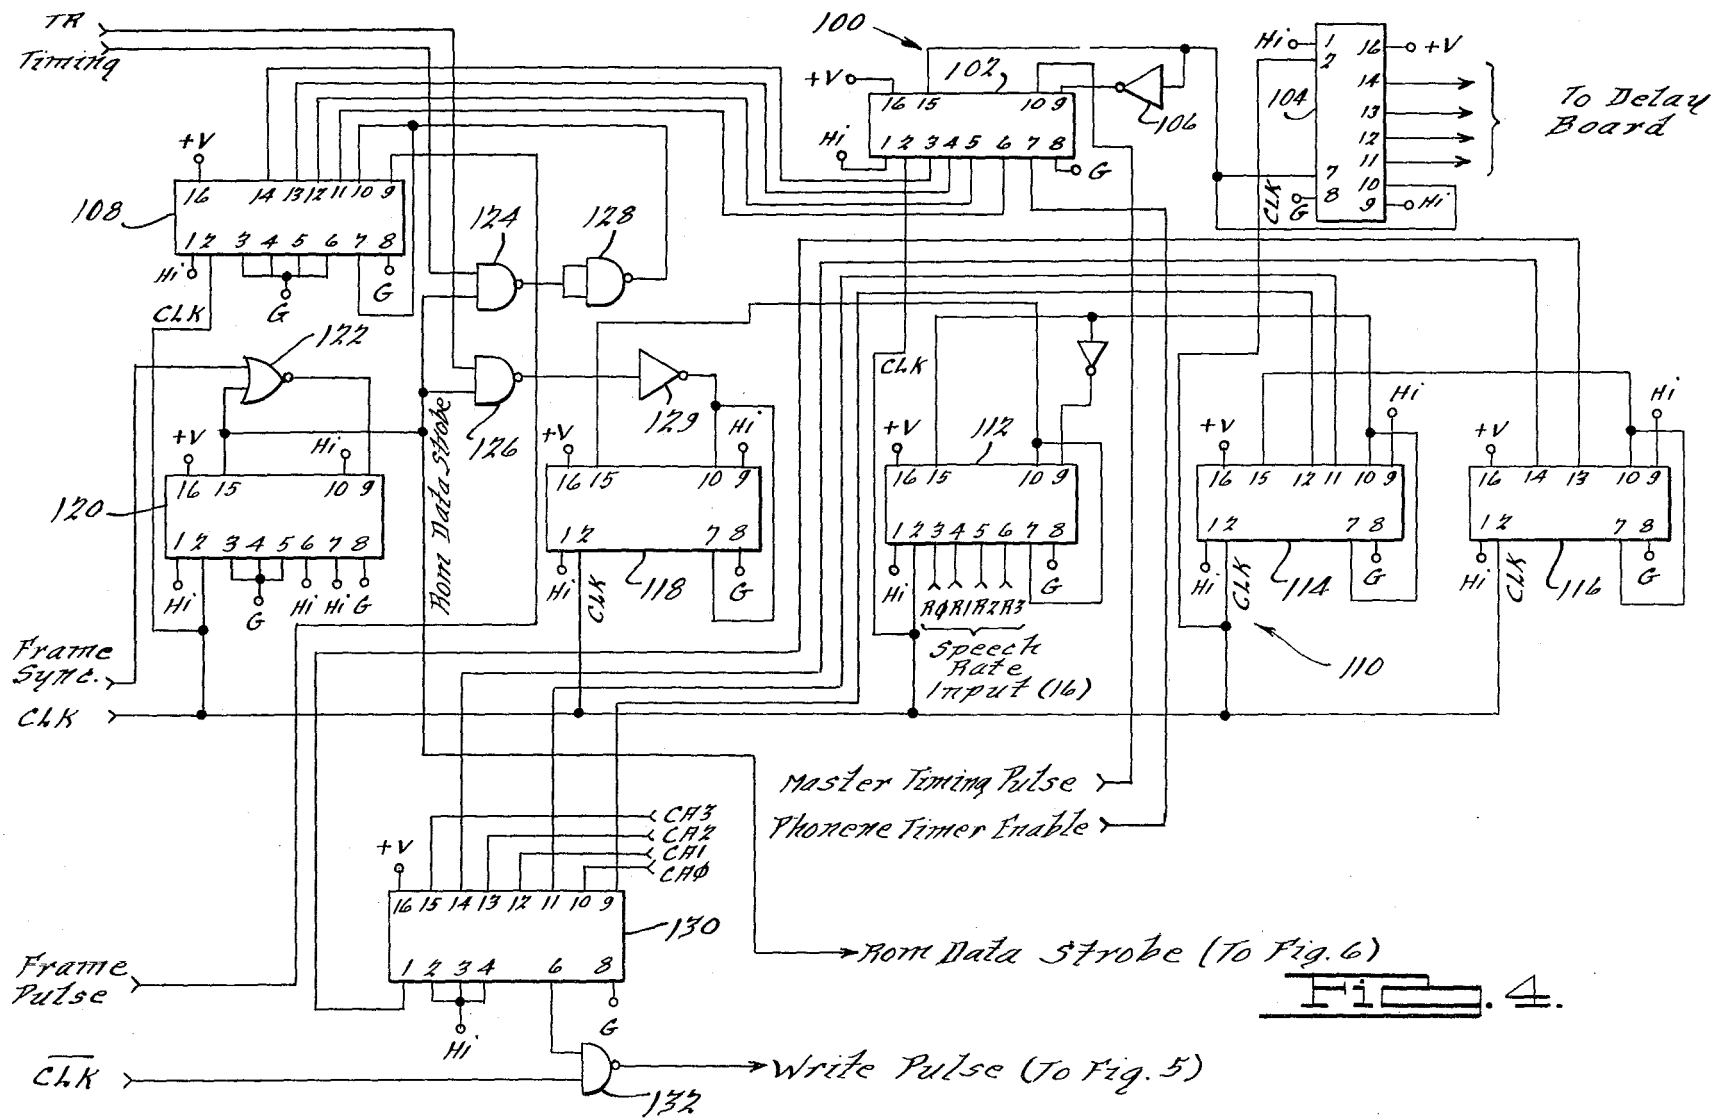 TR
Timing
100
+V
102
16 15 10 9
1 2 3 4 5 6 7 8
Hi
G
106
Hi
1 16
+V
2
14
104
13
12
11
7
10
8
9
CLK
G
Hi
To Delay
Board
+V
108
16 14 13 12 11 10 9
1 2 3 4 5 6 7 8
Hi
G
G
CLK
124
128
122
126
129
Rom Data Strobe
+V
Hi
120
16 15 10 9
1 2 3 4 5 6 7 8
Hi
G
Hi Hi G
+V
Hi
16 15 10 9
1 2 7 8
Hi
CLK
118
G
CLK
+V
112
16 15 10 9
1 2 3 4 5 6 7 8
Hi
G
RØ R1 R2 R3
Speech
Rate
Input (16)
+V
Hi
16 15 12 11 10 9
1 2 7 8
Hi
CLK
114
G
+V
Hi
16 14 13 10 9
1 2 7 8
Hi
CLK
116
G
110
Frame
Sync.
CLK
Master Timing Pulse
Phonene Timer Enable
CA3
CA2
CA1
CAØ
+V
16 15 14 13 12 11 10 9
130
1 2 3 4 6 8
Hi
G
Frame
Pulse
Rom Data Strobe (To Fig. 6)
CLK
Write Pulse (To Fig. 5)
132
Fig. 4.